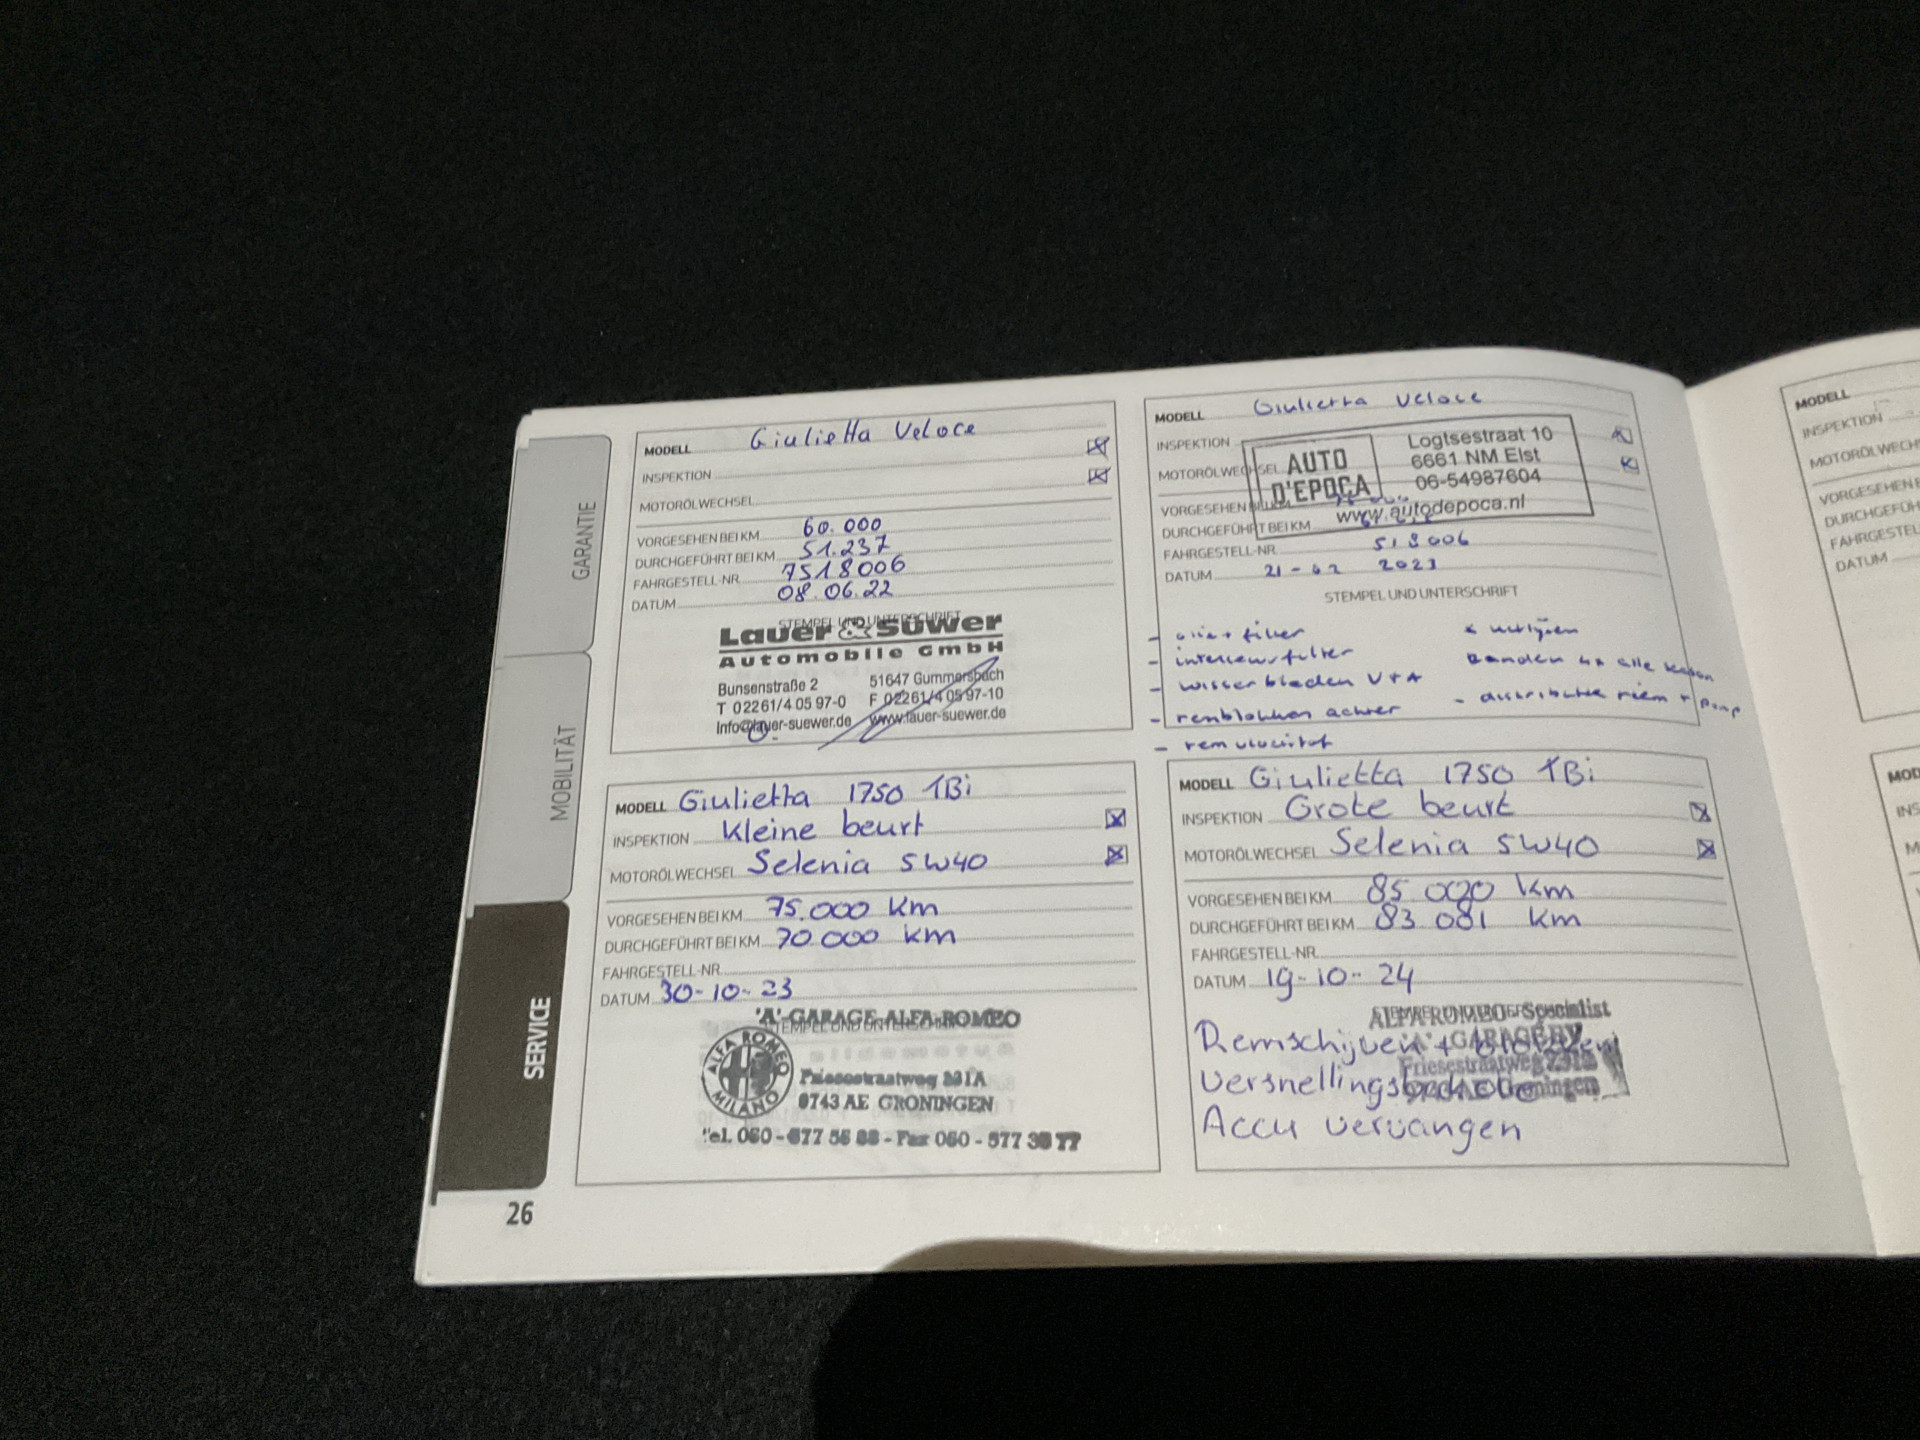 GARANTIE
MOBILITÄT
SERVICE
MODELL Giulietta Veloce
INSPEKTION
MOTORÖLWECHSEL
VORGESEHEN BEI KM 60.000
DURCHGEFÜHRT BEI KM 51.237
FAHRGESTELL-NR. 7518006
DATUM 08.06.22
STEMPEL UND UNTERSCHRIFT
Lauer & Süwer
Automobile GmbH
Bunsenstraße 2 51647 Gummersbach
T 02261/4 05 97-0 F 02261/4 05 97-10
Info@lauer-suewer.de www.lauer-suewer.de
MODELL Giulietta Veloce
INSPEKTION
MOTORÖLWECHSEL
AUTO D'EPOCA
Logtsestraat 10
6661 NM Elst
06-54987604
www.autodepoca.nl
VORGESEHEN BEI KM
DURCHGEFÜHRT BEI KM
FAHRGESTELL-NR. 518006
DATUM 21-02 2023
STEMPEL UND UNTERSCHRIFT
- olie + filter
- interieurfilter
- wisserbladen V+A
- remblokken achter
- remvloeistof
Banden 4x alle
- distributie riem + pomp
MODELL Giulietta 1750 TBi
INSPEKTION Kleine beurt
MOTORÖLWECHSEL Selenia 5W40
VORGESEHEN BEI KM 75.000 km
DURCHGEFÜHRT BEI KM 70.000 km
FAHRGESTELL-NR.
DATUM 30-10-23
STEMPEL UND UNTERSCHRIFT
'A'-GARAGE-ALFA-ROMEO
ALFA ROMEO
MILANO
Friesestraatweg 231A
9743 AE GRONINGEN
Tel. 050 - 577 56 88 - Fax 050 - 577 38 77
MODELL Giulietta 1750 TBi
INSPEKTION Grote beurt
MOTORÖLWECHSEL Selenia 5W40
VORGESEHEN BEI KM 85 000 km
DURCHGEFÜHRT BEI KM 83 081 km
FAHRGESTELL-NR.
DATUM 19-10-24
ALFA ROMEO Specialist
'A' GARAGE BV
Friesestraatweg 231A
9743 AE Groningen
Remschijven + blokken
Versnellingsbakolie
Accu vervangen
26
MODELL
INSPEKTION
MOTORÖLWECHS
VORGESEHEN B
DURCHGEFÜH
FAHRGESTEL
DATUM
MOD
INS